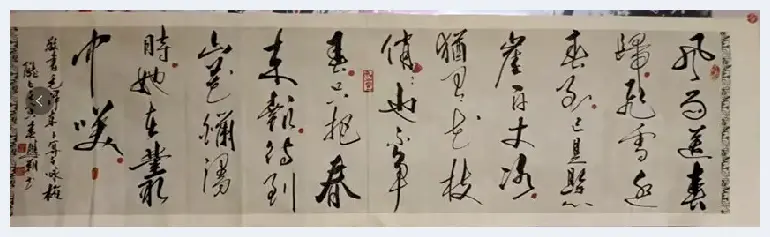 风雨送春
归飞雪迎
春到已是悬
崖百丈冰
犹有花枝
俏俏也不争
春只把春
来报待到
山花烂漫
时她在丛
中笑